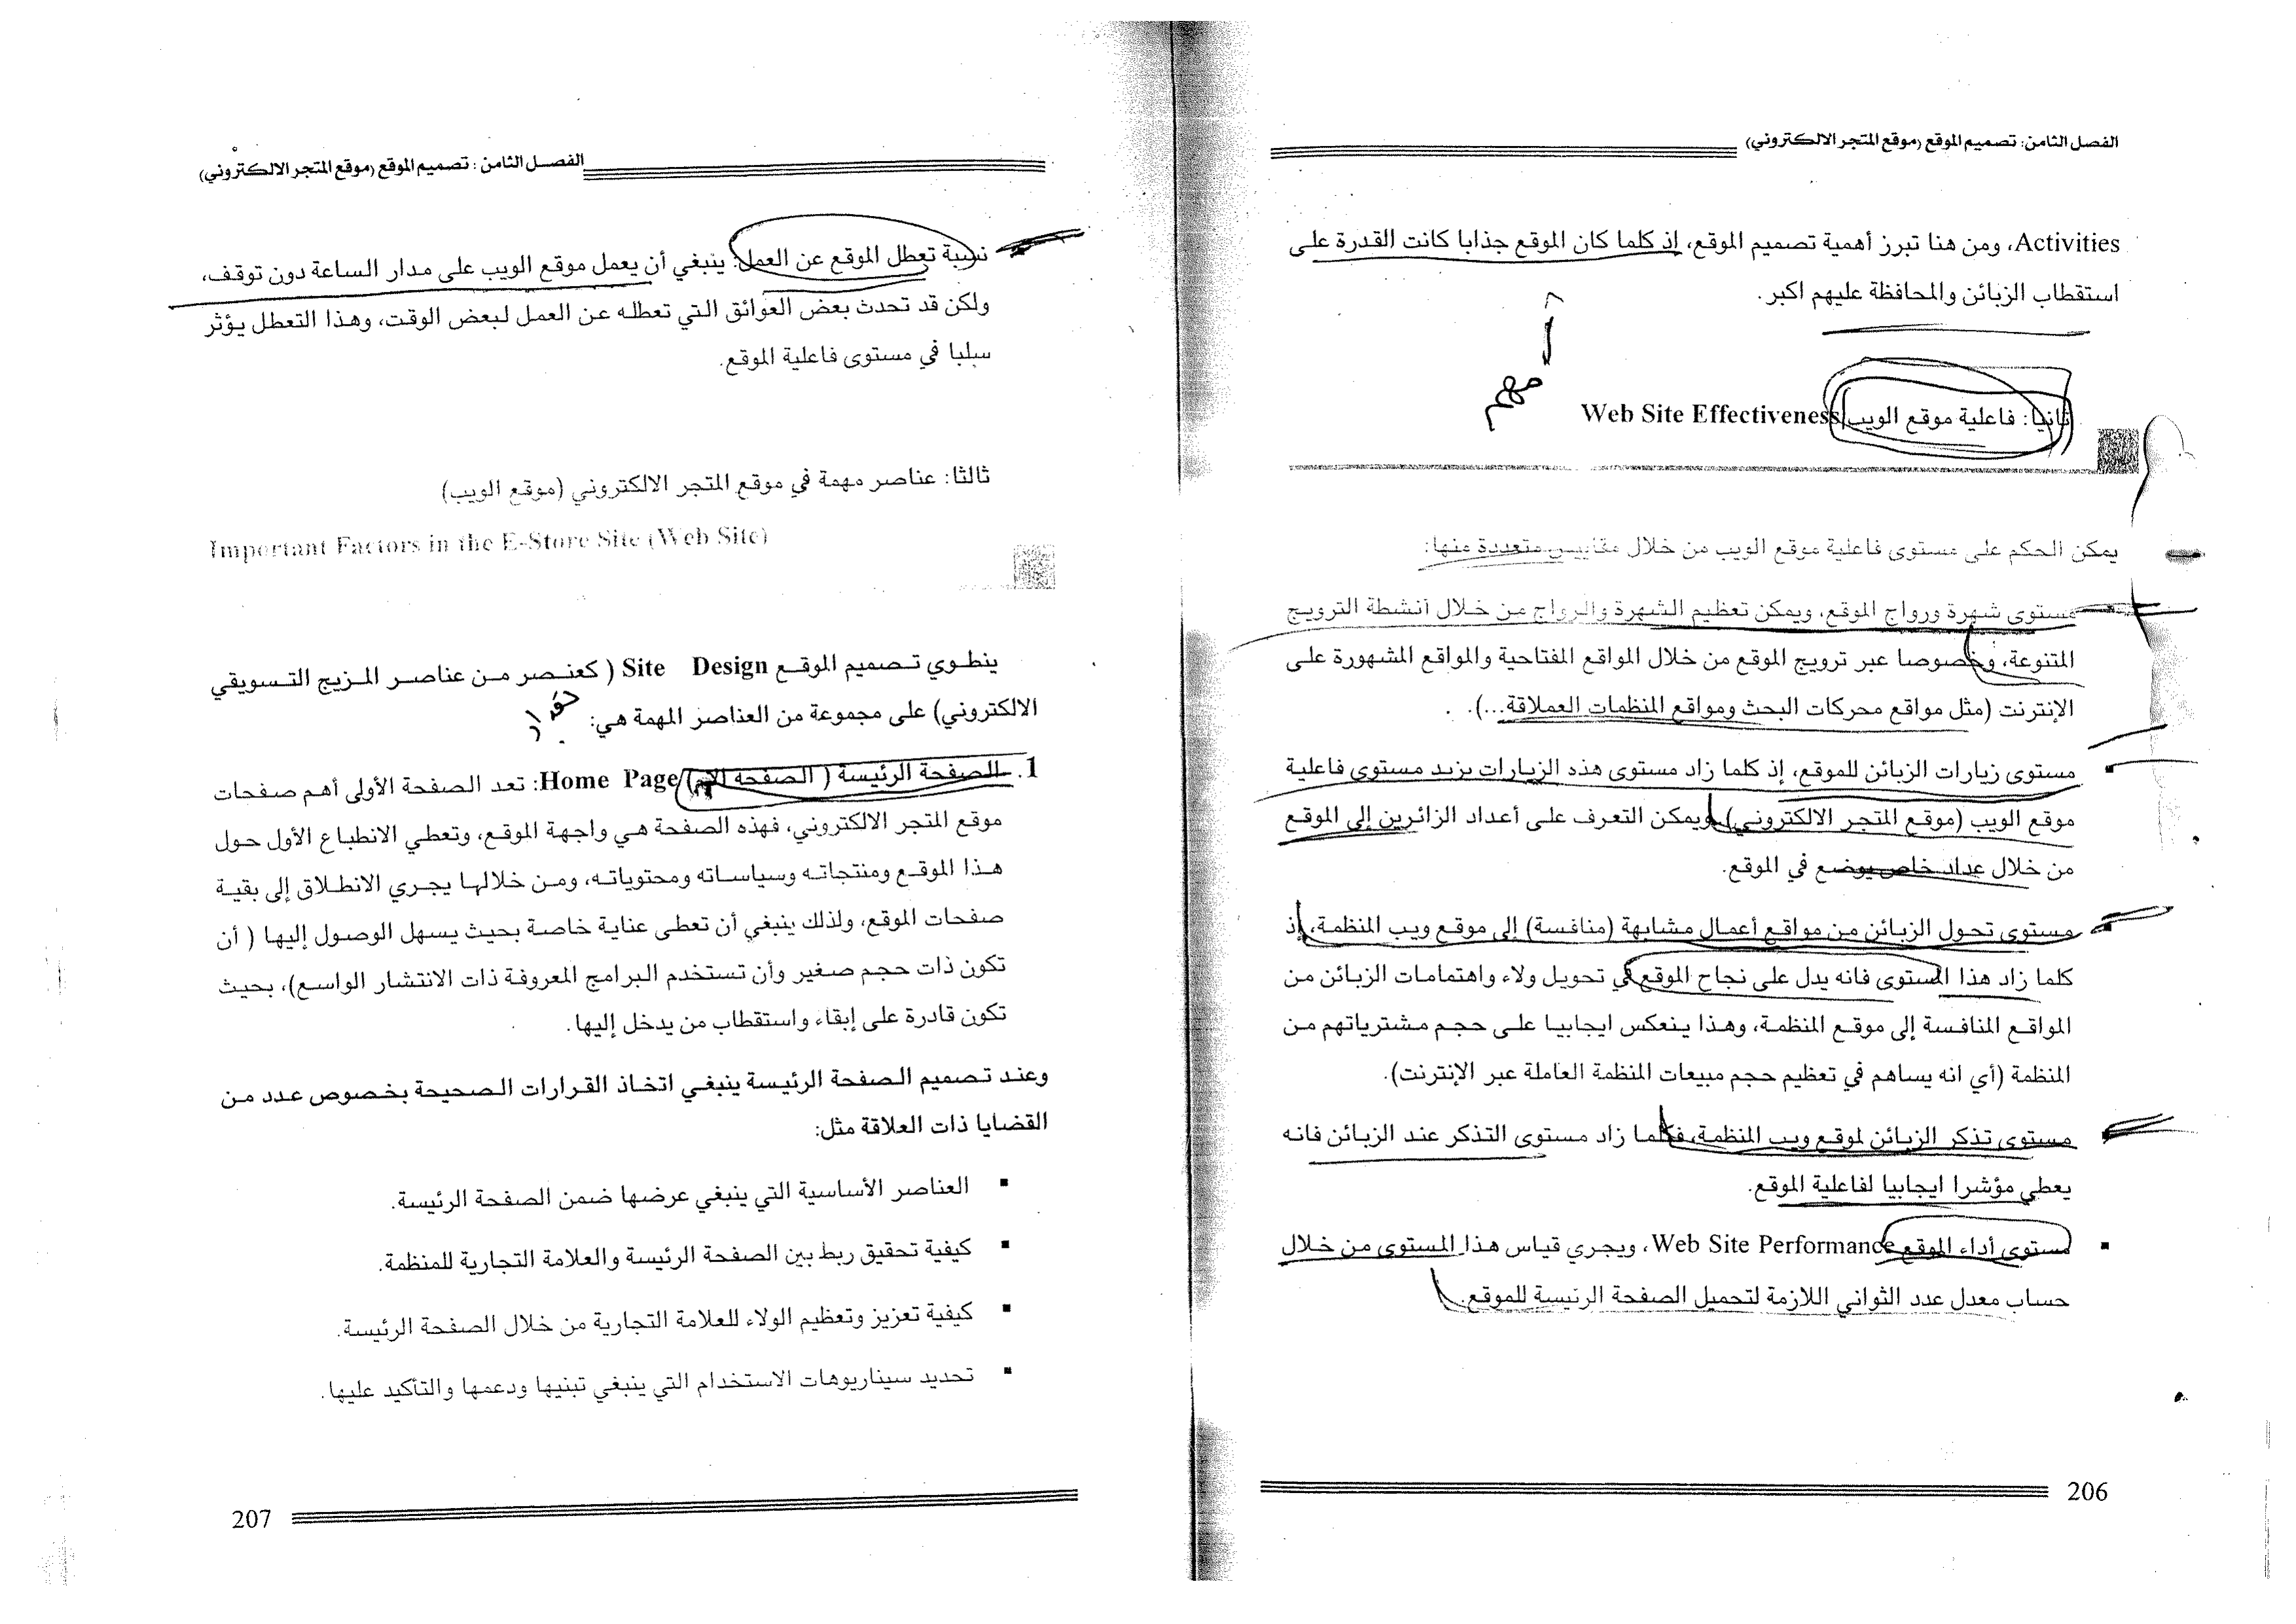 الفصل الثامن: تصميم الموقع (موقع المتجر الالكتروني)
Activities، ومن هنا تبرز أهمية تصميم الموقع، إذ كلما كان الموقع جذابا كانت القدرة على
استقطاب الزبائن والمحافظة عليهم اكبر.
مهم
ثانيا: فاعلية موقع الويب Web Site Effectiveness
يمكن الحكم على مستوى فاعلية موقع الويب من خلال مقاييس متعددة منها:
مستوى شهرة ورواج الموقع، ويمكن تعظيم الشهرة والرواج من خلال أنشطة الترويج
المتنوعة، وخصوصا عبر ترويج الموقع من خلال المواقع المفتاحية والمواقع المشهورة على
الإنترنت (مثل مواقع محركات البحث ومواقع المنظمات العملاقة...).
▪ مستوى زيارات الزبائن للموقع، إذ كلما زاد مستوى هذه الزيارات يزيد مستوى فاعلية
موقع الويب (موقع المتجر الالكتروني) ويمكن التعرف على أعداد الزائرين إلى الموقع
من خلال عداد خاص يوضع في الموقع.
▪ مستوى تحول الزبائن من مواقع أعمال مشابهة (منافسة) إلى موقع ويب المنظمة، إذ
كلما زاد هذا المستوى فانه يدل على نجاح الموقع في تحويل ولاء واهتمامات الزبائن من
المواقع المنافسة إلى موقع المنظمة، وهذا ينعكس ايجابيا على حجم مشترياتهم من
المنظمة (أي انه يساهم في تعظيم حجم مبيعات المنظمة العاملة عبر الإنترنت).
▪ مستوى تذكر الزبائن لموقع ويب المنظمة، فكلما زاد مستوى التذكر عند الزبائن فانه
يعطي مؤشرا ايجابيا لفاعلية الموقع.
▪ مستوى أداء الموقع Web Site Performance، ويجري قياس هذا المستوى من خلال
حساب معدل عدد الثواني اللازمة لتحميل الصفحة الرئيسة للموقع.
206
الفصل الثامن: تصميم الموقع (موقع المتجر الالكتروني)
▪ نسبة تعطل الموقع عن العمل: ينبغي أن يعمل موقع الويب على مدار الساعة دون توقف،
ولكن قد تحدث بعض العوائق التي تعطله عن العمل لبعض الوقت، وهذا التعطل يؤثر
سلبا في مستوى فاعلية الموقع.
ثالثا: عناصر مهمة في موقع المتجر الالكتروني (موقع الويب)
Important Factors in the E-Store Site (Web Site)
ينطوي تصميم الموقع Site Design ( كعنصر من عناصر المزيج التسويقي
الالكتروني) على مجموعة من العناصر المهمة هي:
1. الصفحة الرئيسة ( الصفحة الأم) Home Page: تعد الصفحة الأولى أهم صفحات
موقع المتجر الالكتروني، فهذه الصفحة هي واجهة الموقع، وتعطي الانطباع الأول حول
هذا الموقع ومنتجاته وسياساته ومحتوياته، ومن خلالها يجري الانطلاق إلى بقية
صفحات الموقع، ولذلك ينبغي أن تعطى عناية خاصة بحيث يسهل الوصول إليها ( أن
تكون ذات حجم صغير وأن تستخدم البرامج المعروفة ذات الانتشار الواسع)، بحيث
تكون قادرة على إبقاء واستقطاب من يدخل إليها.
وعند تصميم الصفحة الرئيسة ينبغي اتخاذ القرارات الصحيحة بخصوص عدد من
القضايا ذات العلاقة مثل:
▪ العناصر الأساسية التي ينبغي عرضها ضمن الصفحة الرئيسة.
▪ كيفية تحقيق ربط بين الصفحة الرئيسة والعلامة التجارية للمنظمة.
▪ كيفية تعزيز وتعظيم الولاء للعلامة التجارية من خلال الصفحة الرئيسة.
▪ تحديد سيناريوهات الاستخدام التي ينبغي تبنيها ودعمها والتأكيد عليها.
207